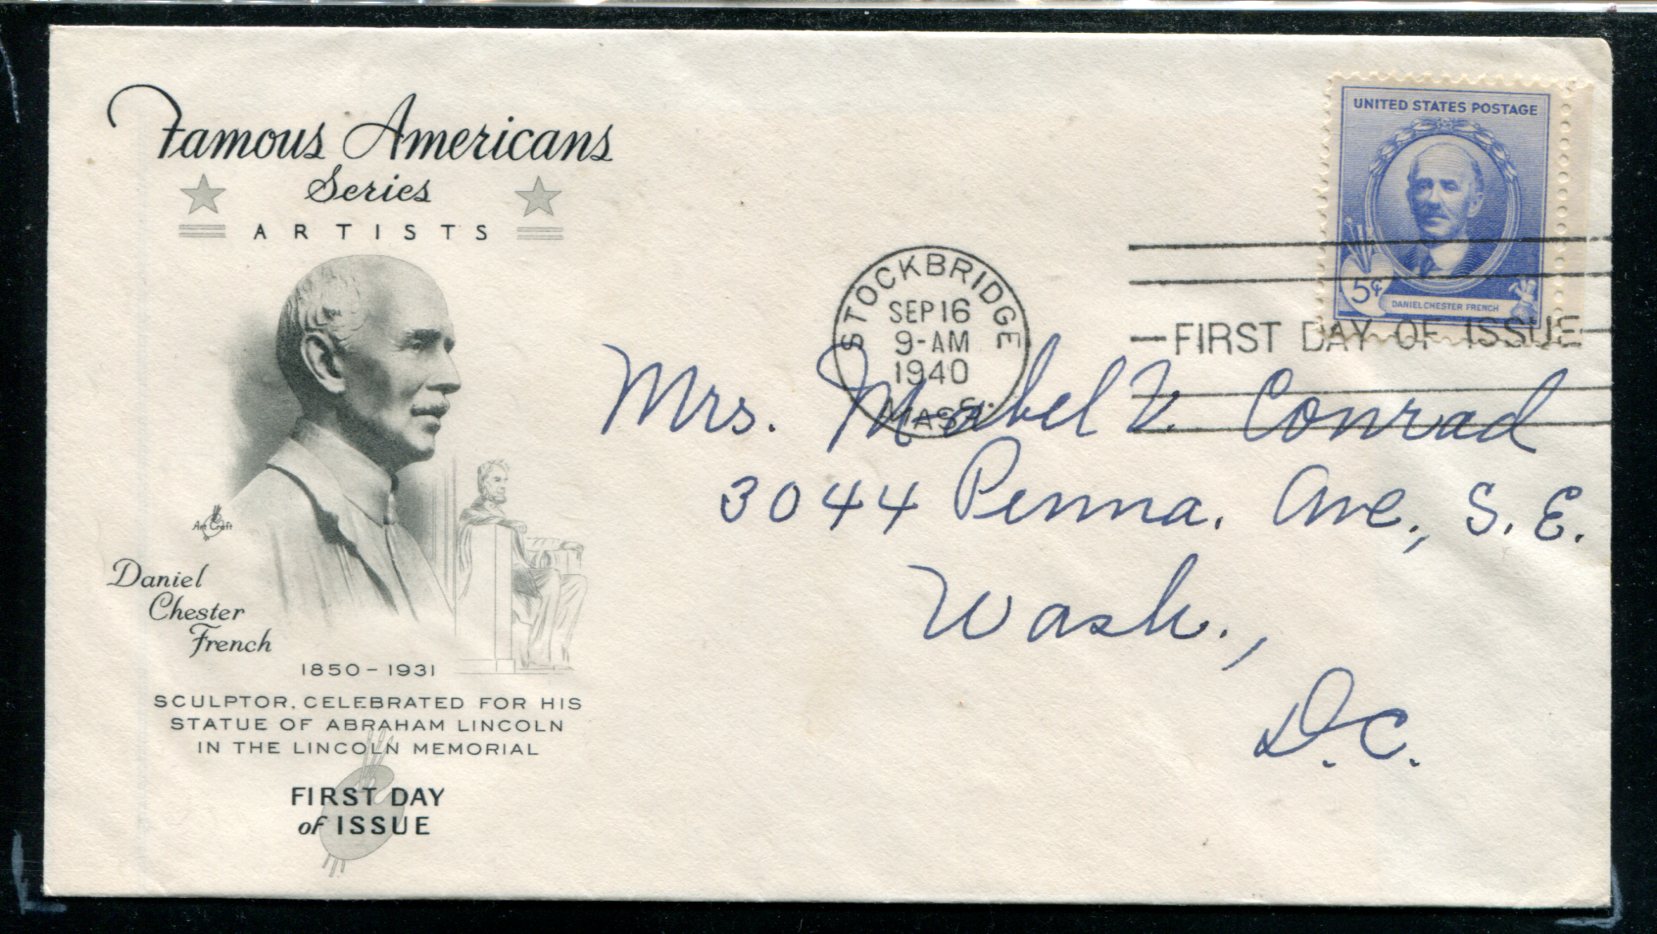 Famous Americans
Series
ARTISTS
Art Craft
Daniel
Chester
French
1850-1931
SCULPTOR, CELEBRATED FOR HIS
STATUE OF ABRAHAM LINCOLN
IN THE LINCOLN MEMORIAL
FIRST DAY
of ISSUE
STOCKBRIDGE
SEP 16
9-AM
1940
MASS.
UNITED STATES POSTAGE
5¢
DANIEL CHESTER FRENCH
FIRST DAY OF ISSUE
Mrs. Mabel V. Conrad
3044 Penna. Ave., S.E.
Wash.,
D.C.